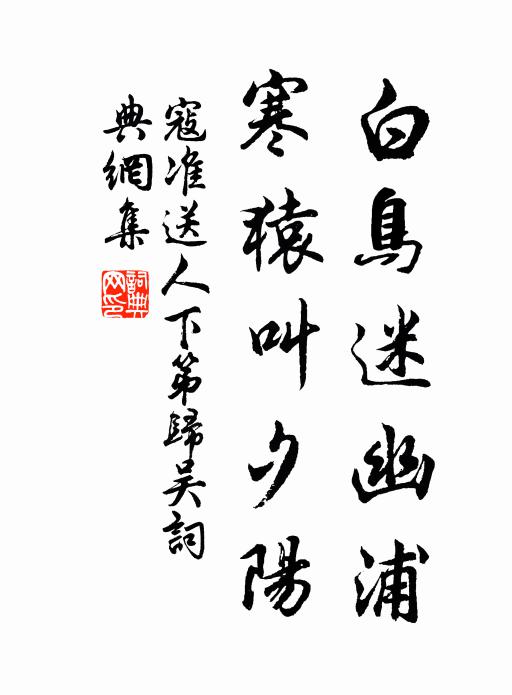 白鳥迷幽浦
寒猿叫夕陽
寇准送人下第歸吳詞
典網集
詞典网印